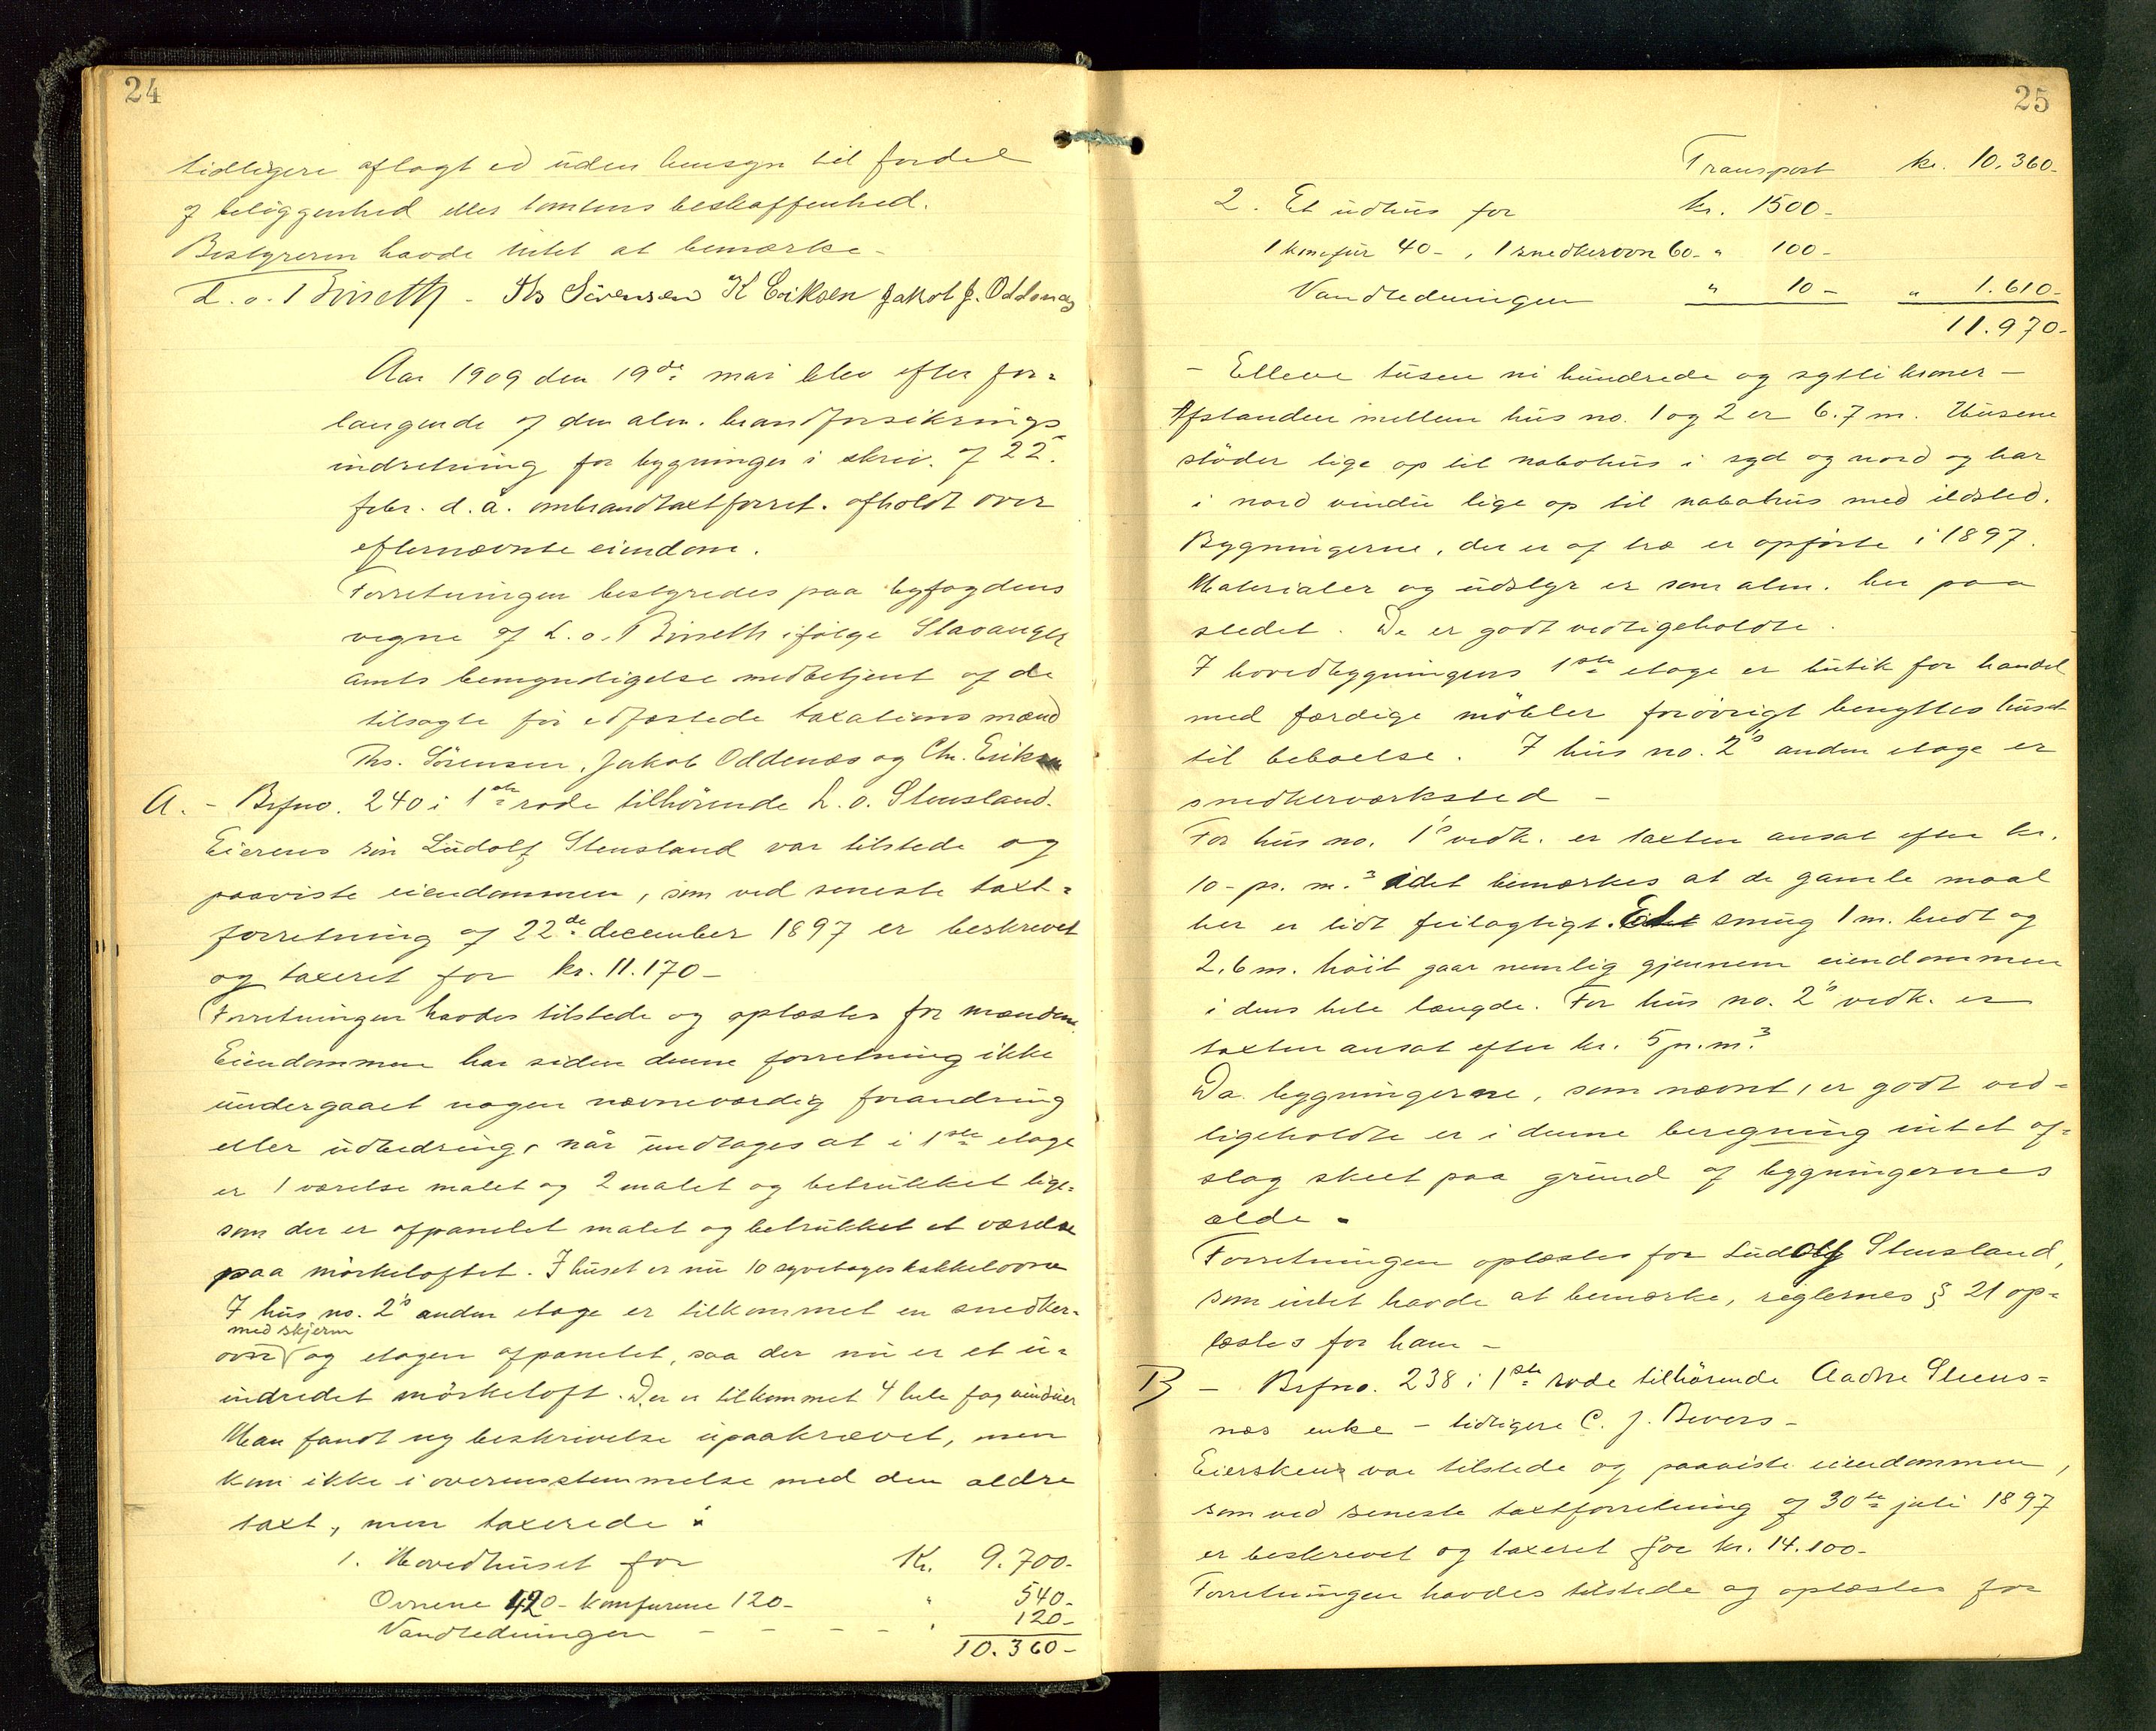 24
tidligere aflagt ed uden hensyn til fordel
af beliggenhed eller tomtens beskaffenhed.
Bestyreren havde intet at bemærke -
L. o. - Ths Sörensen K Eriksen Jakob J. Oddenæs
Aar 1909 den 19de mai blev efter for-
langende af den alm. brandforsikrings
indretning for bygninger i skriv. af 22.
febr. d. å. ombrandtaxtforret. afholdt over
efternævnte eiendom.
Forretningen bestyredes paa byfogdens
vegne af L. o. ifølge Stavanger
amts bemyndigelse medbetjent af de
tilsagte før edfæstede taxationsmænd
Ths. Sörensen, Jakob Oddenæs og Chr. Eriksen
A. - Brfno. 240 i 1ste rode tilhörende L. o. Stensland.
Eierens sön Ludolf Stensland var tilstede og
paaviste eiendommen, som ved seneste taxt-
forretning af 22de december 1897 er beskrevet
og taxeret for kr. 11.170 -
Forretningen havdes tilstede og oplæstes for mændene.
Eiendommen har siden denne forretning ikke
undergaaet nogen nævneværdig forandring
eller udbedring, når undtages at i 1ste etage
er 1 værelse malet og 2 malet og betrukket lige-
som der er afpanelet malet og betrukket et værelse
paa mörkeloftet. I huset er nu 10 syvetages kakkelovne
I hus no. 2's anden etage er tilkommet en snedker-
med skjerm
ovn og etagen afpanelet, saa der nu er et u-
indredet mörkeloft. Der er tilkommet 4 hele fag vinduer
Man fandt ny beskrivelse upaakrævet, men
kom ikke i overensstemmelse med den ældre
taxt, men taxerede:
1. Hovedhuset for Kr. 9.700-
Ovnene 420- komfurene 120- " 540-
Vandledningen - - - - " 120-
10.360-
25
Transport kr. 10.360-
2. Et udhus for kr. 1500-
1 komfur 40-, 1 snedkerovn 60- " 100-
Vandledningen " 10- " 1.610-
11.970-
- Elleve tusen ni hundrede og sytti kroner -
Afstanden mellem hus no. 1 og 2 er 6.7 m. Husene
stöder lige op til nabohus i syd og nord og har
i nord vindu lige op til nabohus med ildsted.
Bygningerne, der er af træ er opförte i 1897.
Materialer og udstyr er som alm. her paa
stedet. De er godt vedligeholdte.
I hovedbygningens 1ste etage er butik for handel
med færdige möbler forövrigt benyttes huset
til beboelse. I hus no. 2's anden etage er
snedkerværksted -
For hus no. 1's vedk. er taxten ansat efter kr.
10- pr. m.3 idet bemærkes at de gamle maal
her er lidt feilagtigt. Et smug 1 m. bredt og
2,6 m. höit gaar nemlig gjennem eiendommen
i dens hele længde. For hus no. 2's vedk. er
taxten ansat efter kr. 5 pr. m.3
Da bygningerne, som nævnt, er godt ved-
ligeholdte er i denne beregning intet af-
slag skeet paa grund af bygningernes
ælde -
Forretningen oplæstes for Ludolf Stensland,
som intet havde at bemærke, reglernes § 21 op-
læstes for ham -
B - Brfno. 238 i 1ste rode tilhörende Aadne Steens-
næs enke - tidligere C. J. Bevers -
Eiersken var tilstede og paaviste eiendommen,
som ved seneste taxtforretning af 30te juli 1897
er beskrevet og taxeret for kr. 14.100-
Forretningen havdes tilstede og oplæstes for